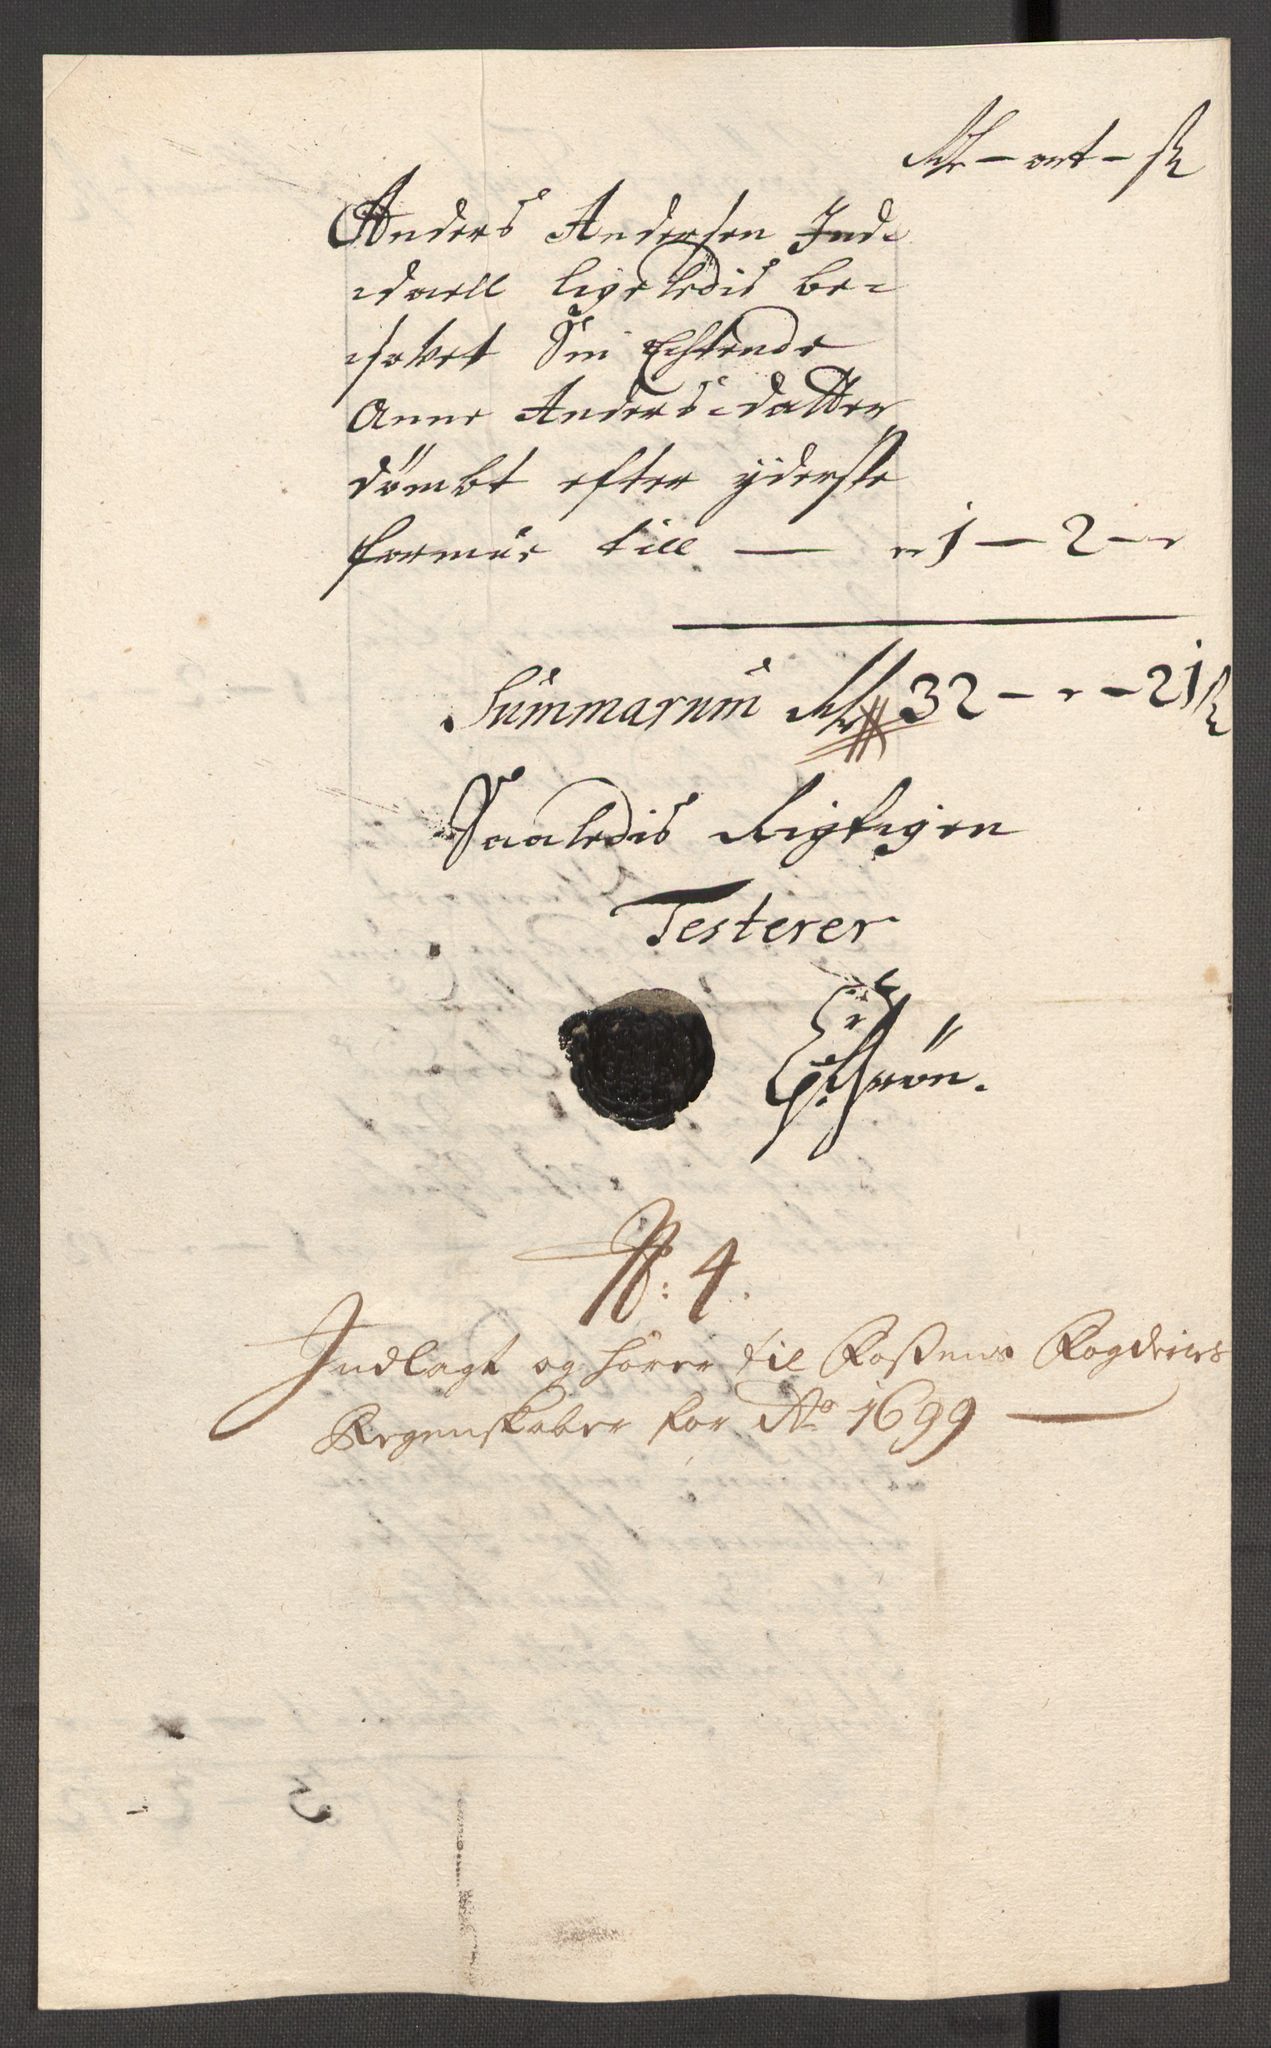 Rdr – ort – sk
Anders Andersen Ind-
daell ligeledis be-
sovet Sin Echtende
Anne Anders-datter
dömbt efter ÿderste
formue till — " 1 – 2 – "
Summarum Rdr 32 – " – 21 sk
Saaledis Rigtigen
Testerer
Grön.
N: 4.
Indlagt og hörer til Foßens Fogderies
Regenskaber for Ao 1699